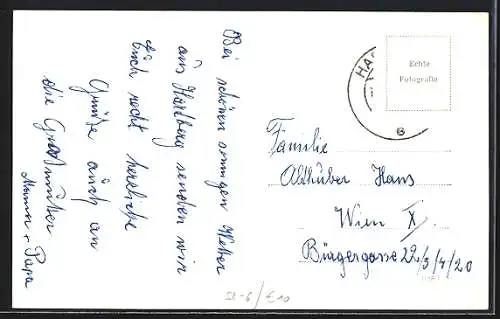 Bei schönen sonnigen Wetter
aus Hartberg senden wir
Euch recht herzliche
Grüße auch an
die Großmutter
Mama + Papa
Echte
Fotografie
HA
Familie
Althuber Hans
Wien X.
Bürgergasse 22/3/4/20